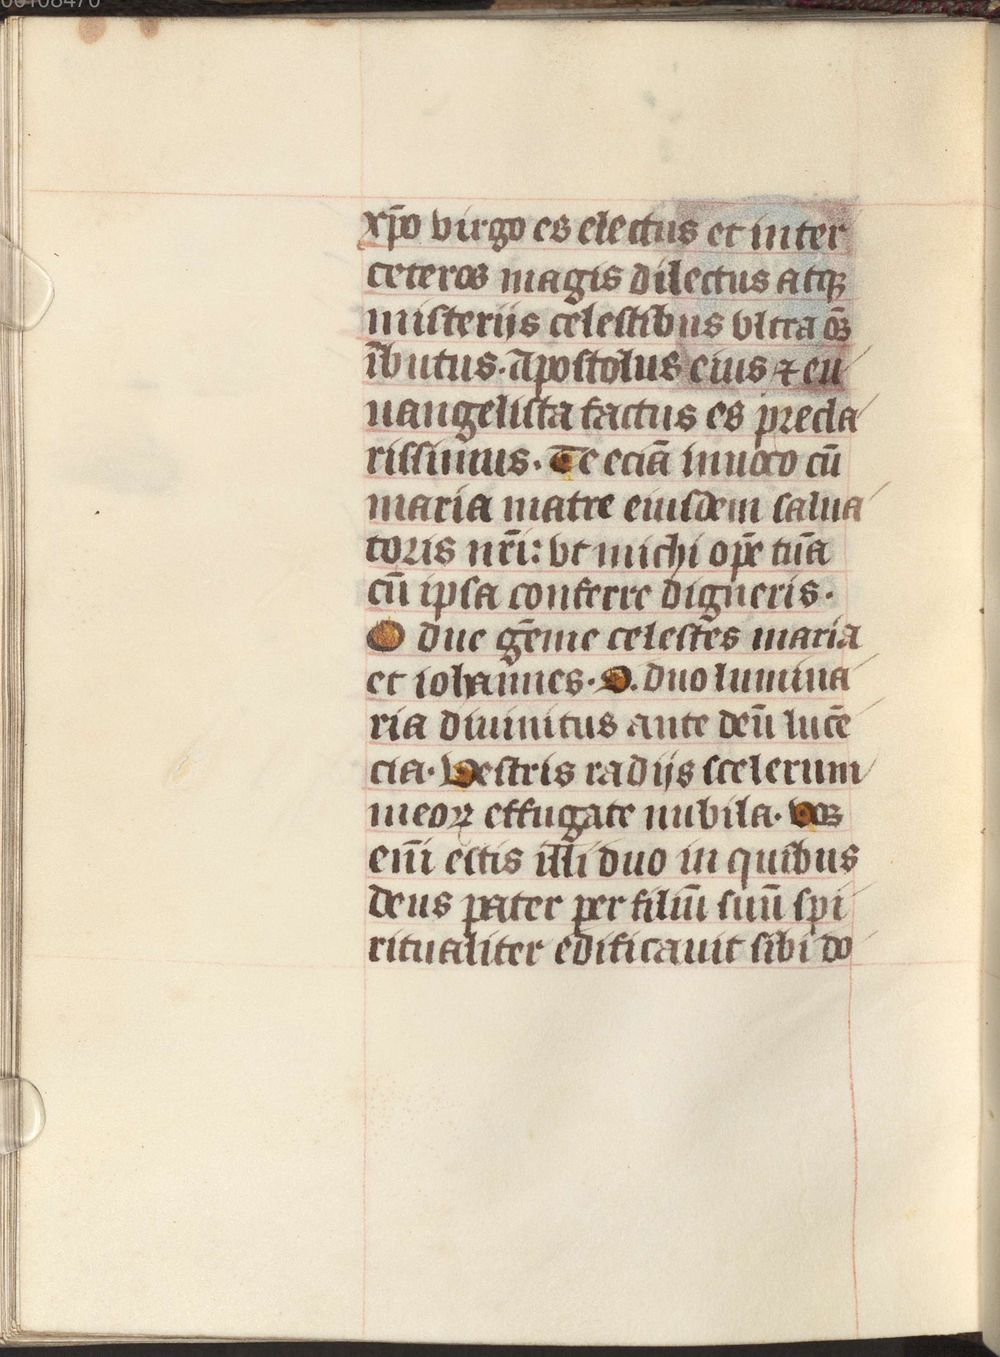 xp̄o virgo es electus et inter
ceteros magis dilectus atqꝫ
misterijs celestibus vltra o͞s
ībutus. Apostolus eius ⁊ eu
uangelista factus es precla
rissimus. Te eciā inuoco cū
maria matre eiusdem salua
toris nr̄i: vt michi opē tuā
cū ipsa conferre digneris.
O due gēme celestes maria
et iohannes. O. duo lumina
ria diuinitus ante deū lucē
cia. Vestris radijs scelerum
meoꝝ effugate nubila. Vos
enī estis illi duo in quibus
deus pater per filiū suū spi
ritualiter edificauit sibi do